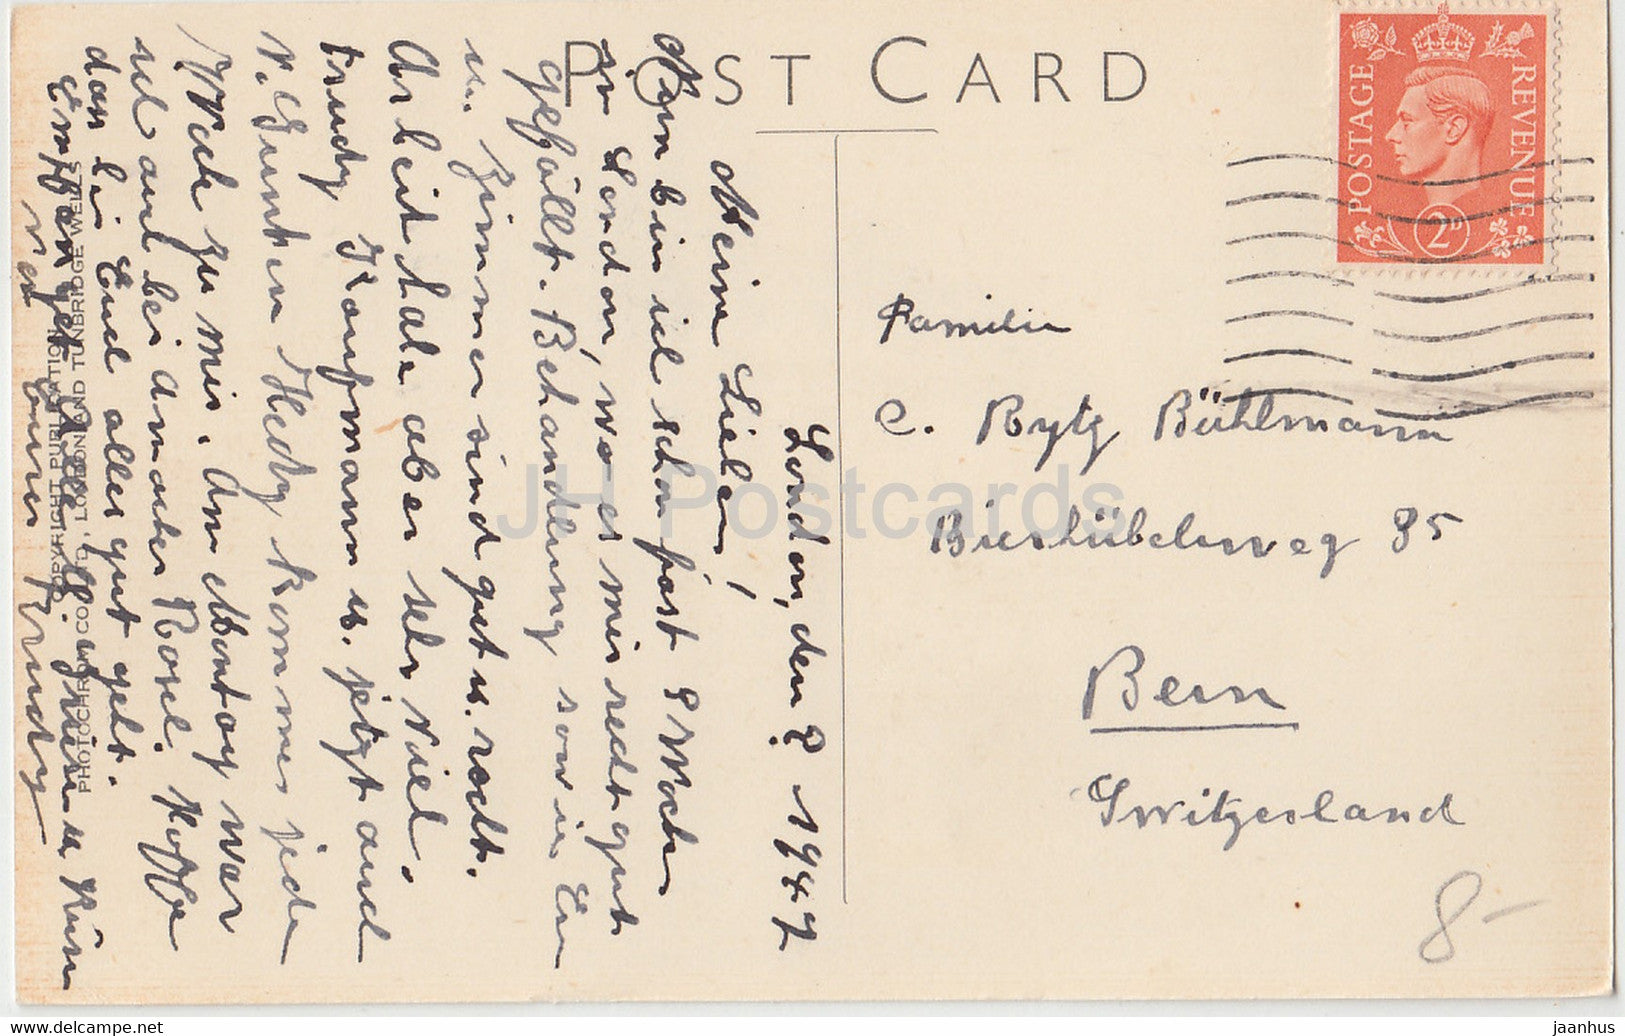 POST CARD
POSTAGE
REVENUE
2D
London, den ? 1947
Meine Lieben!
Nun bin ich schon fast 3 Wochen
in London, wo es mir recht gut
gefällt. Behandlung sowie Essen
u. Zimmer sind gut u. recht.
Arbeit habe aber sehr viel.
Trudy Kaufmann u. jetzt auch
v. Gunten Hedy kommen jede
Woche zu mir. Am Montag war
ich auch bei Rosel. Hoffe
das bei Euch alles gut geht.
Empfanget alle u.
von Eurer Trudy
COPYRIGHT PUBLICATION
PHOTOCHROM CO. LTD., LONDON AND TUNBRIDGE WELLS
Familie
C. Rytz Bühlmann
Bierhübeliweg 35
Bern
Switzerland
8-
JH Postcards
www.delcampe.net
jaanhus